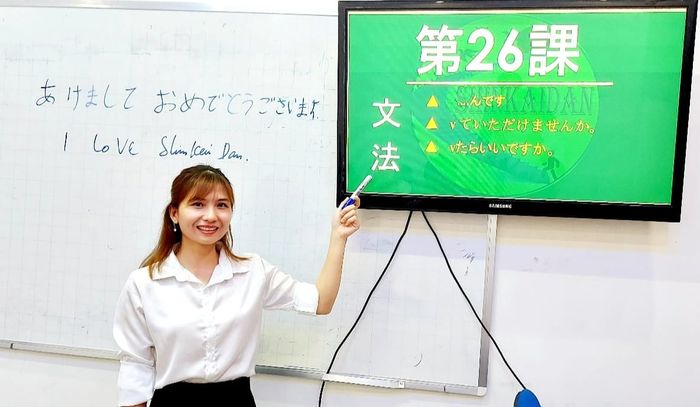 あけまして おめでとうございます.
I LoVE ShinKai Dan.
第26課
文法
▲ …んです
SHINKAIDAN
▲ vていただけませんか。
▲ vたらいいですか。
SAMSUNG